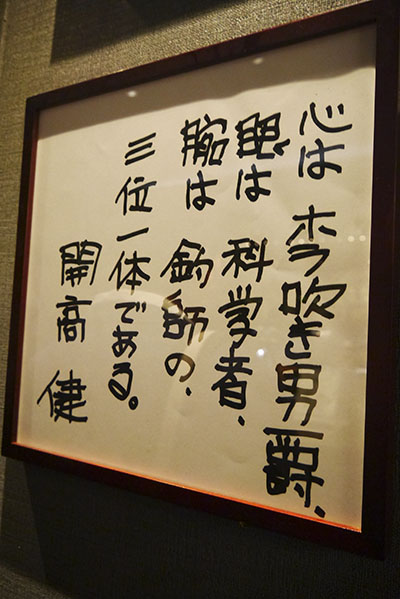 心はホラ吹き男爵、
眼は科学者、
腕は釣師の、
三位一体である。
開高健